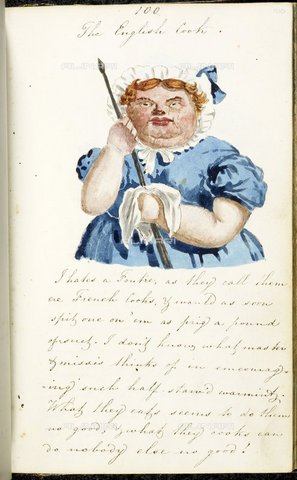 100
The English Cook.
I hates a Foutre, as they call them
ere French Cooks, & would as soon
spit one on 'em as prig a pound
of roast. I don't know what master
& missis thinks of in encourag-
ing such half starv'd warmints.
What they eats seems to do them
no good, & what they cooks can
do nobody else no good!